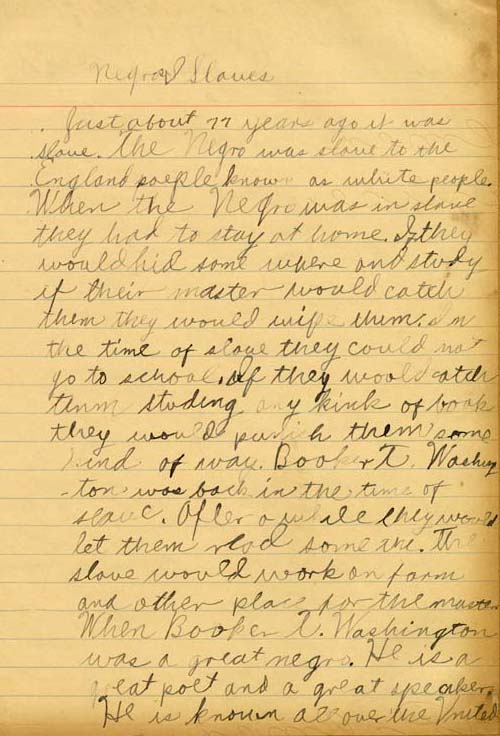 Negros Slaves
Just about 77 years ago it was
slave. The Negro was slave to the
England poeple known as white people.
When the Negro was in slave
they had to stay at home. If they
would hid some where and study
if their master would catch
them they would wipe them. In
the time of slave they could not
go to school. If they would catch
them studing any kink of book
they would punish them some
kind of way. Booker T. Washing
-ton was back in the time of
slave. After a while they would
let them read some
slave would work on farm
and other place for the master
When Booker T. Washington
was a great negro. He is a
great poet and a great speaker.
He is known all over the United